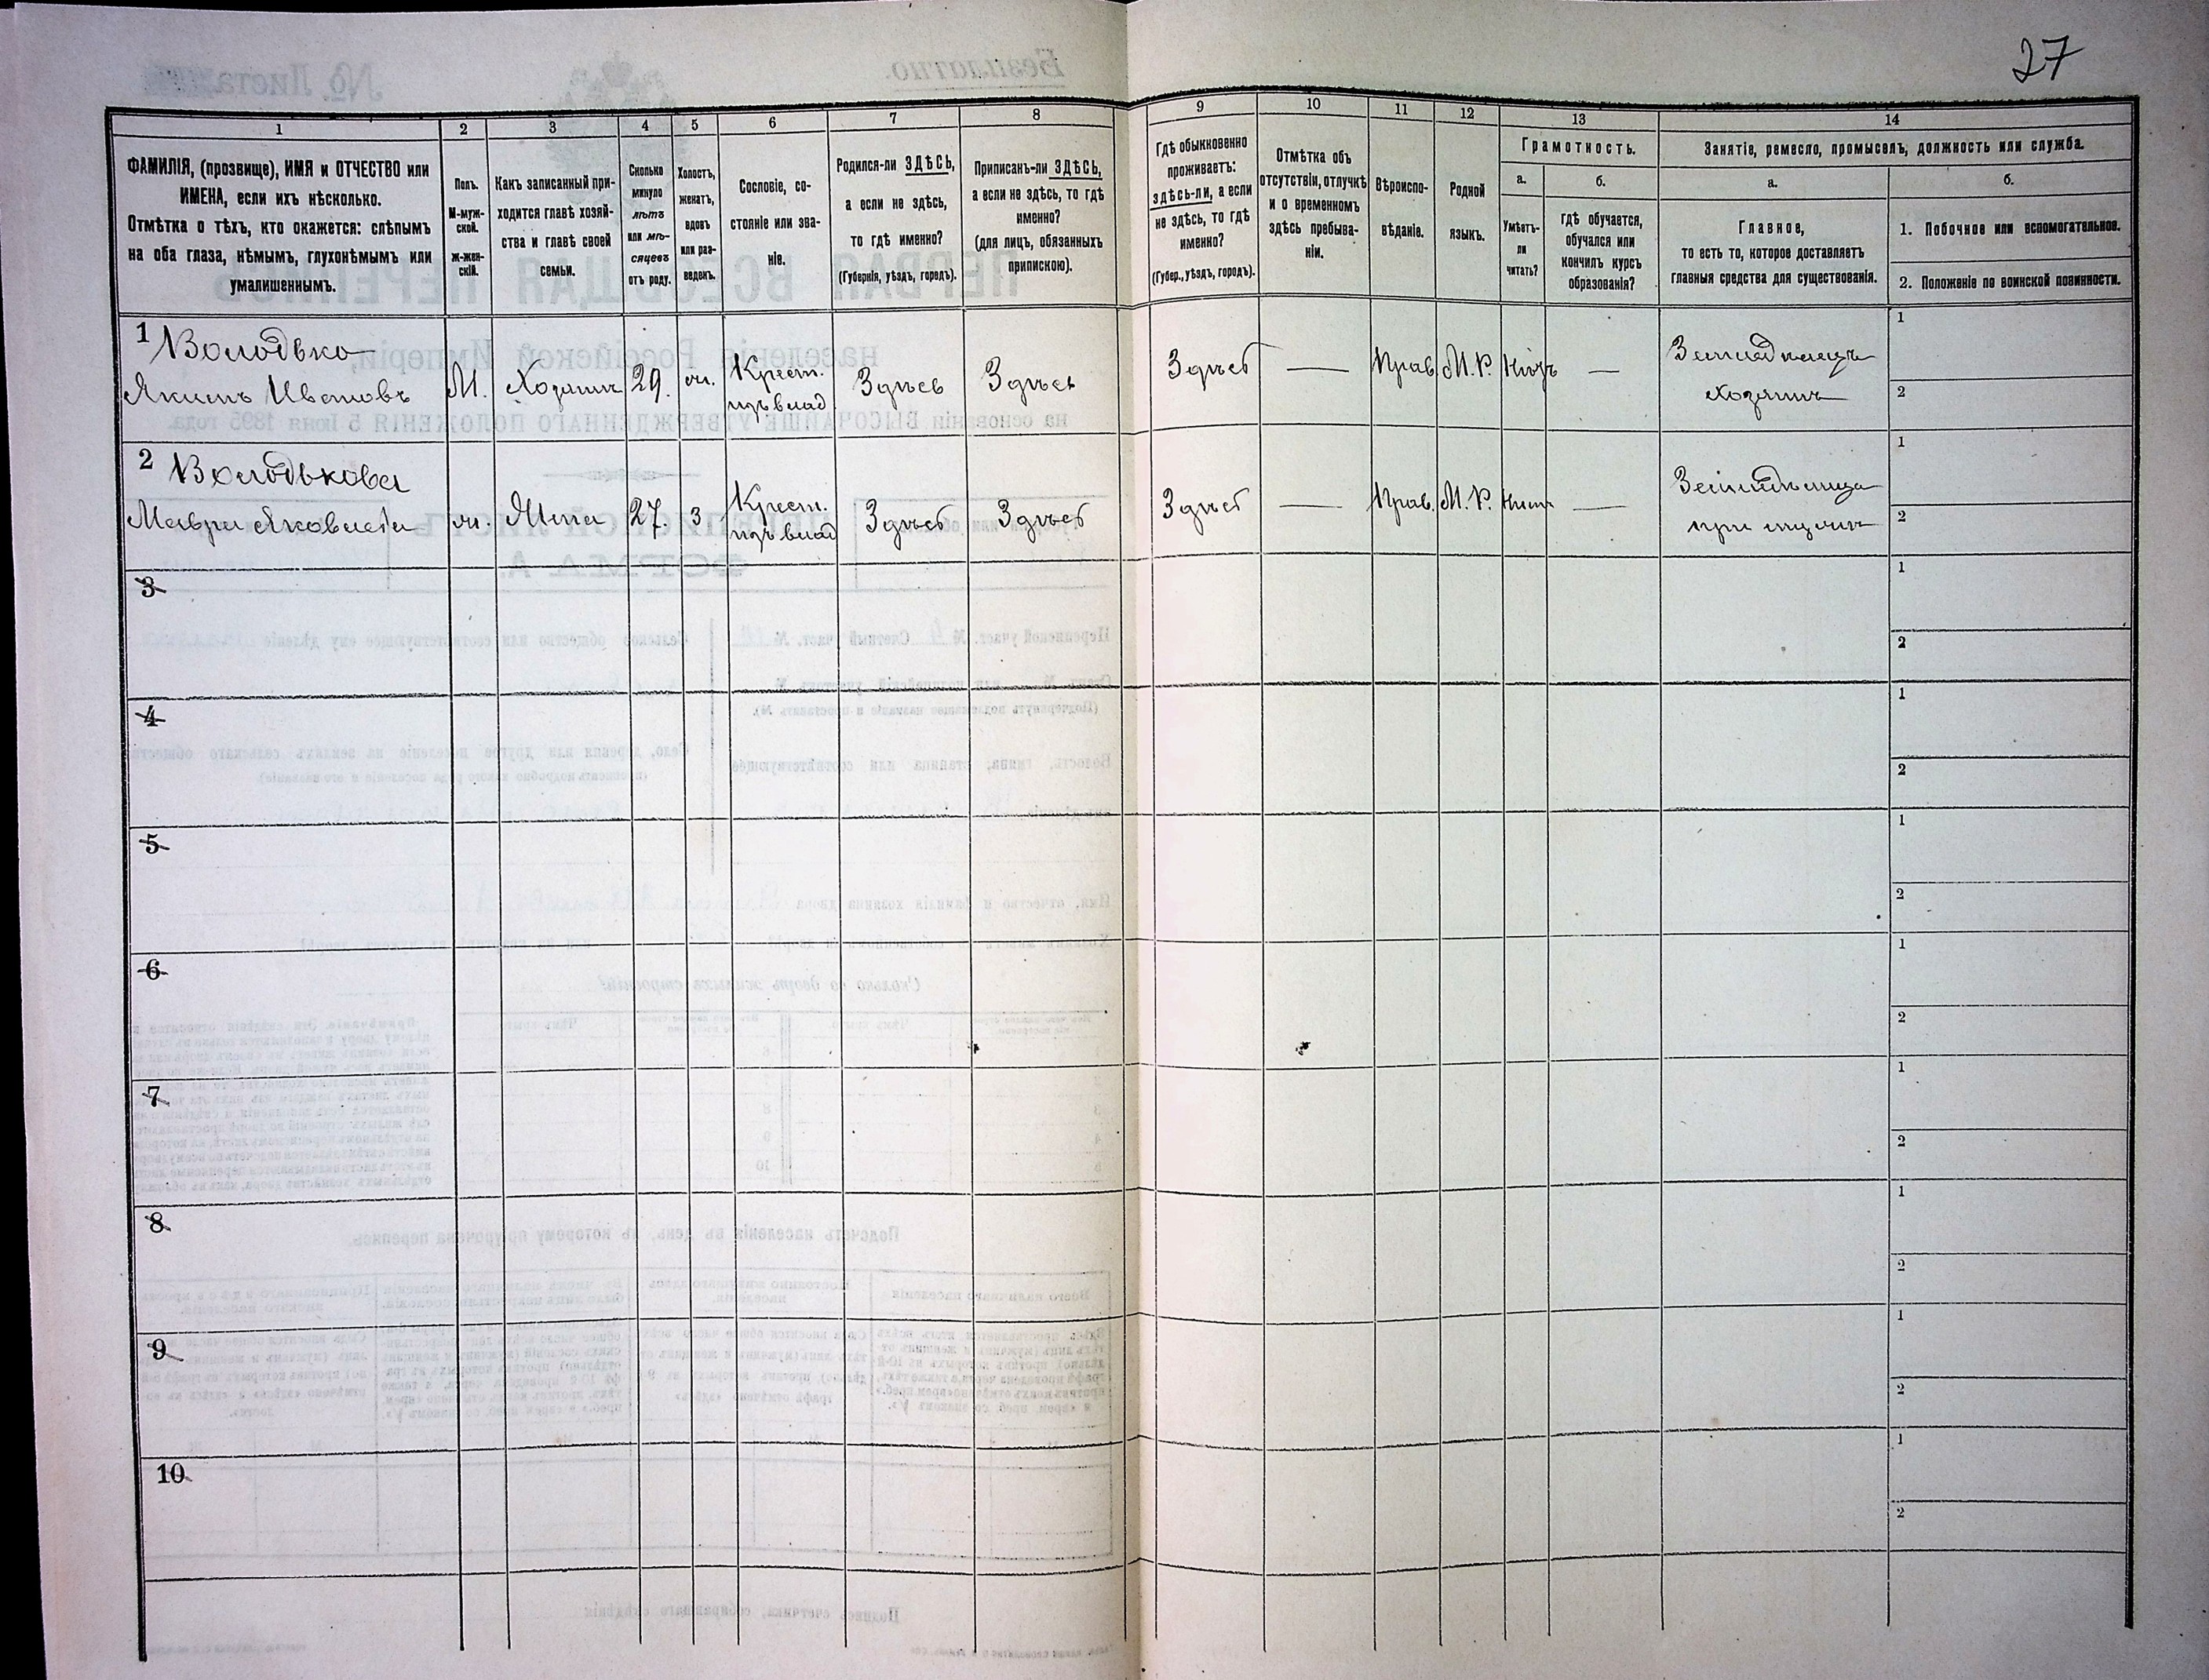 27
1
2
3
4
5
6
7
8
9
10
11
12
13
14
ФАМИЛІЯ, (прозвище), ИМЯ и ОТЧЕСТВО или
ИМЕНА, если ихъ нѣсколько.
Отмѣтка о тѣхъ, кто окажется: слѣпымъ
на оба глаза, нѣмымъ, глухонѣмымъ или
умалишеннымъ.
Полъ.
М-муж-
ской.
ж-жен-
скій.
Какъ записанный при-
ходится главѣ хозяй-
ства и главѣ своей
семьи.
Сколько
минуло
лѣтъ
или мѣ-
сяцевъ
отъ роду.
Холостъ,
женатъ,
вдовъ
или раз-
веденъ.
Сословіе, со-
стояніе или зва-
ніе.
Родился-ли ЗДѢСЬ,
а если не здѣсь,
то гдѣ именно?
(Губернія, уѣздъ, городъ).
Приписанъ-ли ЗДѢСЬ,
а если не здѣсь, то гдѣ
именно?
(для лицъ, обязанныхъ
припискою).
Гдѣ обыкновенно
проживаетъ:
здѣсь-ли, а если
не здѣсь, то гдѣ
именно?
(Губер., уѣздъ, городъ).
Отмѣтка объ
отсутствіи, отлучкѣ
и о временномъ
здѣсь пребыва-
ніи.
Вѣроиспо-
вѣданіе.
Родной
языкъ.
Грамотность.
а.
Умѣетъ-
ли
читать?
б.
Гдѣ обучается,
обучался или
кончилъ курсъ
образованія?
Занятіе, ремесло, промыселъ, должность или служба.
а.
Главное,
то есть то, которое доставляетъ
главныя средства для существованія.
б.
1. Побочное или вспомогательное.
2. Положеніе по воинской повинности.
1 Володько
Якимъ Ивановъ
М.
Хозяинъ
29.
Крест.
изъ влад.
Здѣсь
Здѣсь
Здѣсь
—
Прав.
М. Р.
—
Земледѣлецъ
хозяинъ
1
2
2 Володькова
Мавра Яковлева
Жена
27.
З
Крест.
изъ влад
Здѣсь
Здѣсь
Здѣсь
—
Прав.
М. Р.
—
при мужѣ
1
2
3
1
2
4
1
2
5
1
2
6
1
2
7
1
2
8
1
2
9
1
2
10
1
2